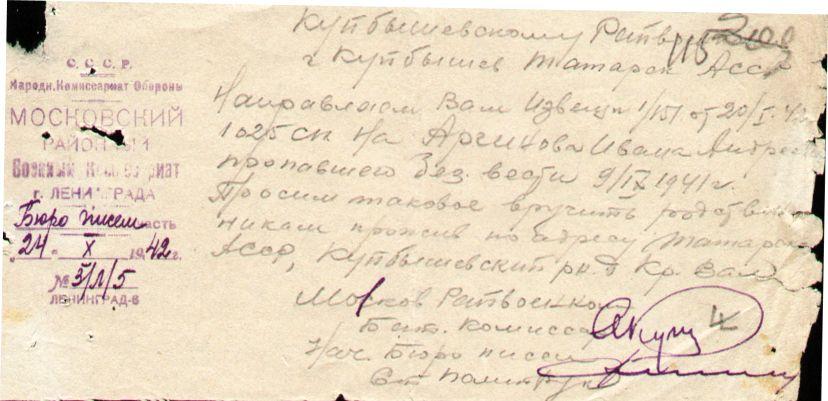 С.С.С.Р.
Народн. Комиссариат Обороны
МОСКОВСКИЙ
РАЙОННЫЙ
Военный
г. ЛЕНИНГРАДА
Бюро писем часть
"24" X 1942 г.
№ 3/Л/5
ЛЕНИНГРАД-6
Куйбышевскому
г Куйбышев Татарск АССР
115
Направляем Вам Извещ 1/151 от 20/I-42
1025 ск на Аргинова Ивана Андрее
пропавшего без вести 9/IX 1941 г.
Просим таковое вручить родствен
никам прожив по адресу Татарск
АССР, Куйбышевский рн. д Кр. Вал
Москов Райвоенком
Бат. Комисса
4
Нач. Бюро писем
Ст Политрук